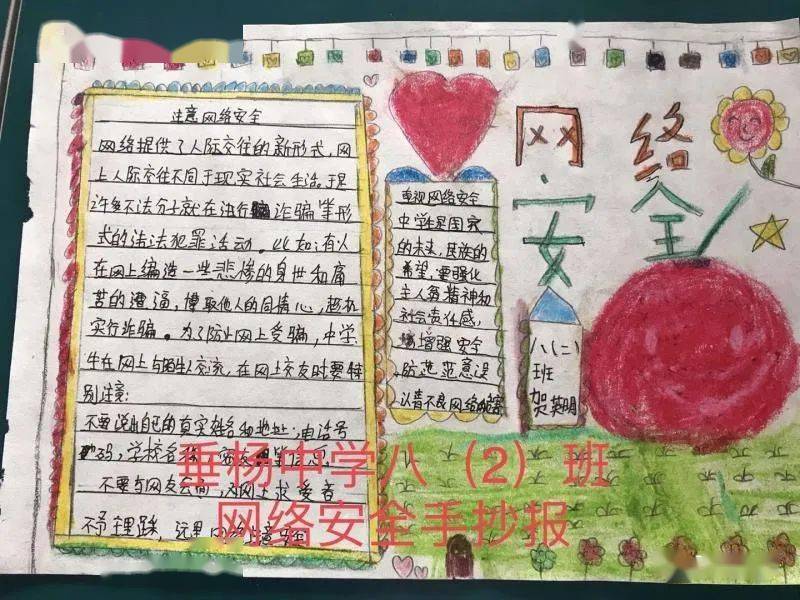 注意网络安全
网络提供了人际交往的新形式,网
上人际交往不同于现实社会生活。于是
许多不法分子就在进行诈骗等形
式的违法犯罪活动。比如:有人
在网上编造一些悲惨的身世和痛
苦的遭遇,博取他人的同情心,趁机
实行诈骗。为了防止网上受骗,中学
生在网上与陌生人交流,在网上交友时要特
别注意:
不要说出自己的真实姓名和地址,电话号
码,学校名称
不要与网友会面,
不予理睬,
重视网络安全
中学生是国家
的未来,民族的
希望,要强化
主人翁精神和
社会责任感,
增强安全
防范意识
认清不良网络的危害
网络
安全
八(二)
班
贺英明
垂杨中学八(2)班
网络安全手抄报